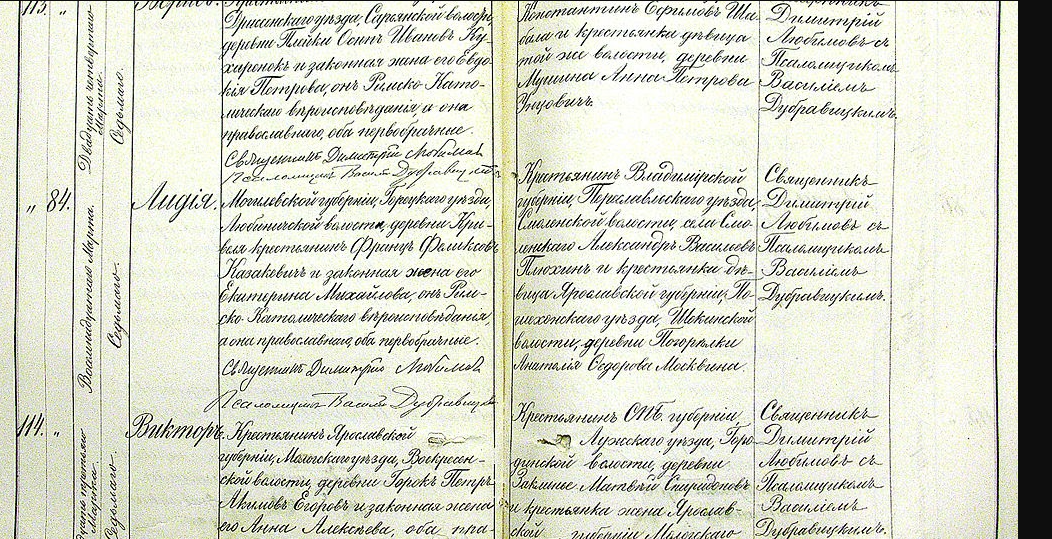 113. „
Дрисенскаго уѣзда, Сарьянской волости,
деревни Плейки Осипъ Ивановъ Ку-
харенокъ и законная жена его Евдо-
кія Петрова, онъ Римско-Като-
лическаго вѣроисповѣданія, а она
православнаго, оба первобрачные.
Священникъ Димитрій Любимовъ
Псаломщикъ Василій Дубравицкій
Двадцать четвертаго
Марта.
Седьмаго.
Константинъ Ефимовъ Ша-
бала и крестьянка дѣвица
той же волости, деревни
Мушина Анна Петрова
Димитрій
Любимовъ съ
Псаломщикомъ
Василіемъ
Дубравицкимъ.
„ 84.
Восемнадцатаго Марта.
Седьмаго.
Лидія.
Могилевской губерніи, Горецкаго уѣзда,
Любиничской волости, деревни Кри-
веля крестьянинъ Францъ Феликсовъ
Казакевичъ и законная жена его
Екатерина Михайлова, онъ Рим-
ско-Католическаго вѣроисповѣданія,
а она православнаго, оба первобрачные.
Священникъ Димитрій Любимовъ
Псаломщикъ Василій Дубравицкій
Крестьянинъ Владимірской
губерніи, Переславльскаго уѣзда,
Смоленской волости, села Смо-
ленскаго Александръ Васильевъ
Плюхинъ и крестьянка дѣ-
вица Ярославской губерніи, По-
шехонскаго уѣзда, Щекинской
волости, деревни Погорѣлки
Анатолія Ѳедорова Москвина.
Священникъ
Димитрій
Любимовъ съ
Псаломщикомъ
Василіемъ
Дубравицкимъ.
114. „
Марта.
Седьмаго.
Викторъ.
Крестьянинъ Ярославской
губерніи, Мологскаго уѣзда, Воскресен-
ской волости, деревни Горокъ Петръ
Акимовъ Егоровъ и законная жена
его Анна Алексѣева, оба пра-
Крестьянинъ СПБ. губерніи,
Лужскаго уѣзда, Горо-
динской волости, деревни
Заклинье Матвѣй Спиридоновъ
и крестьянка жена Ярослав-
ской губерніи Мологскаго
Священникъ
Димитрій
Любимовъ съ
Псаломщикомъ
Василіемъ
Дубравицкимъ.